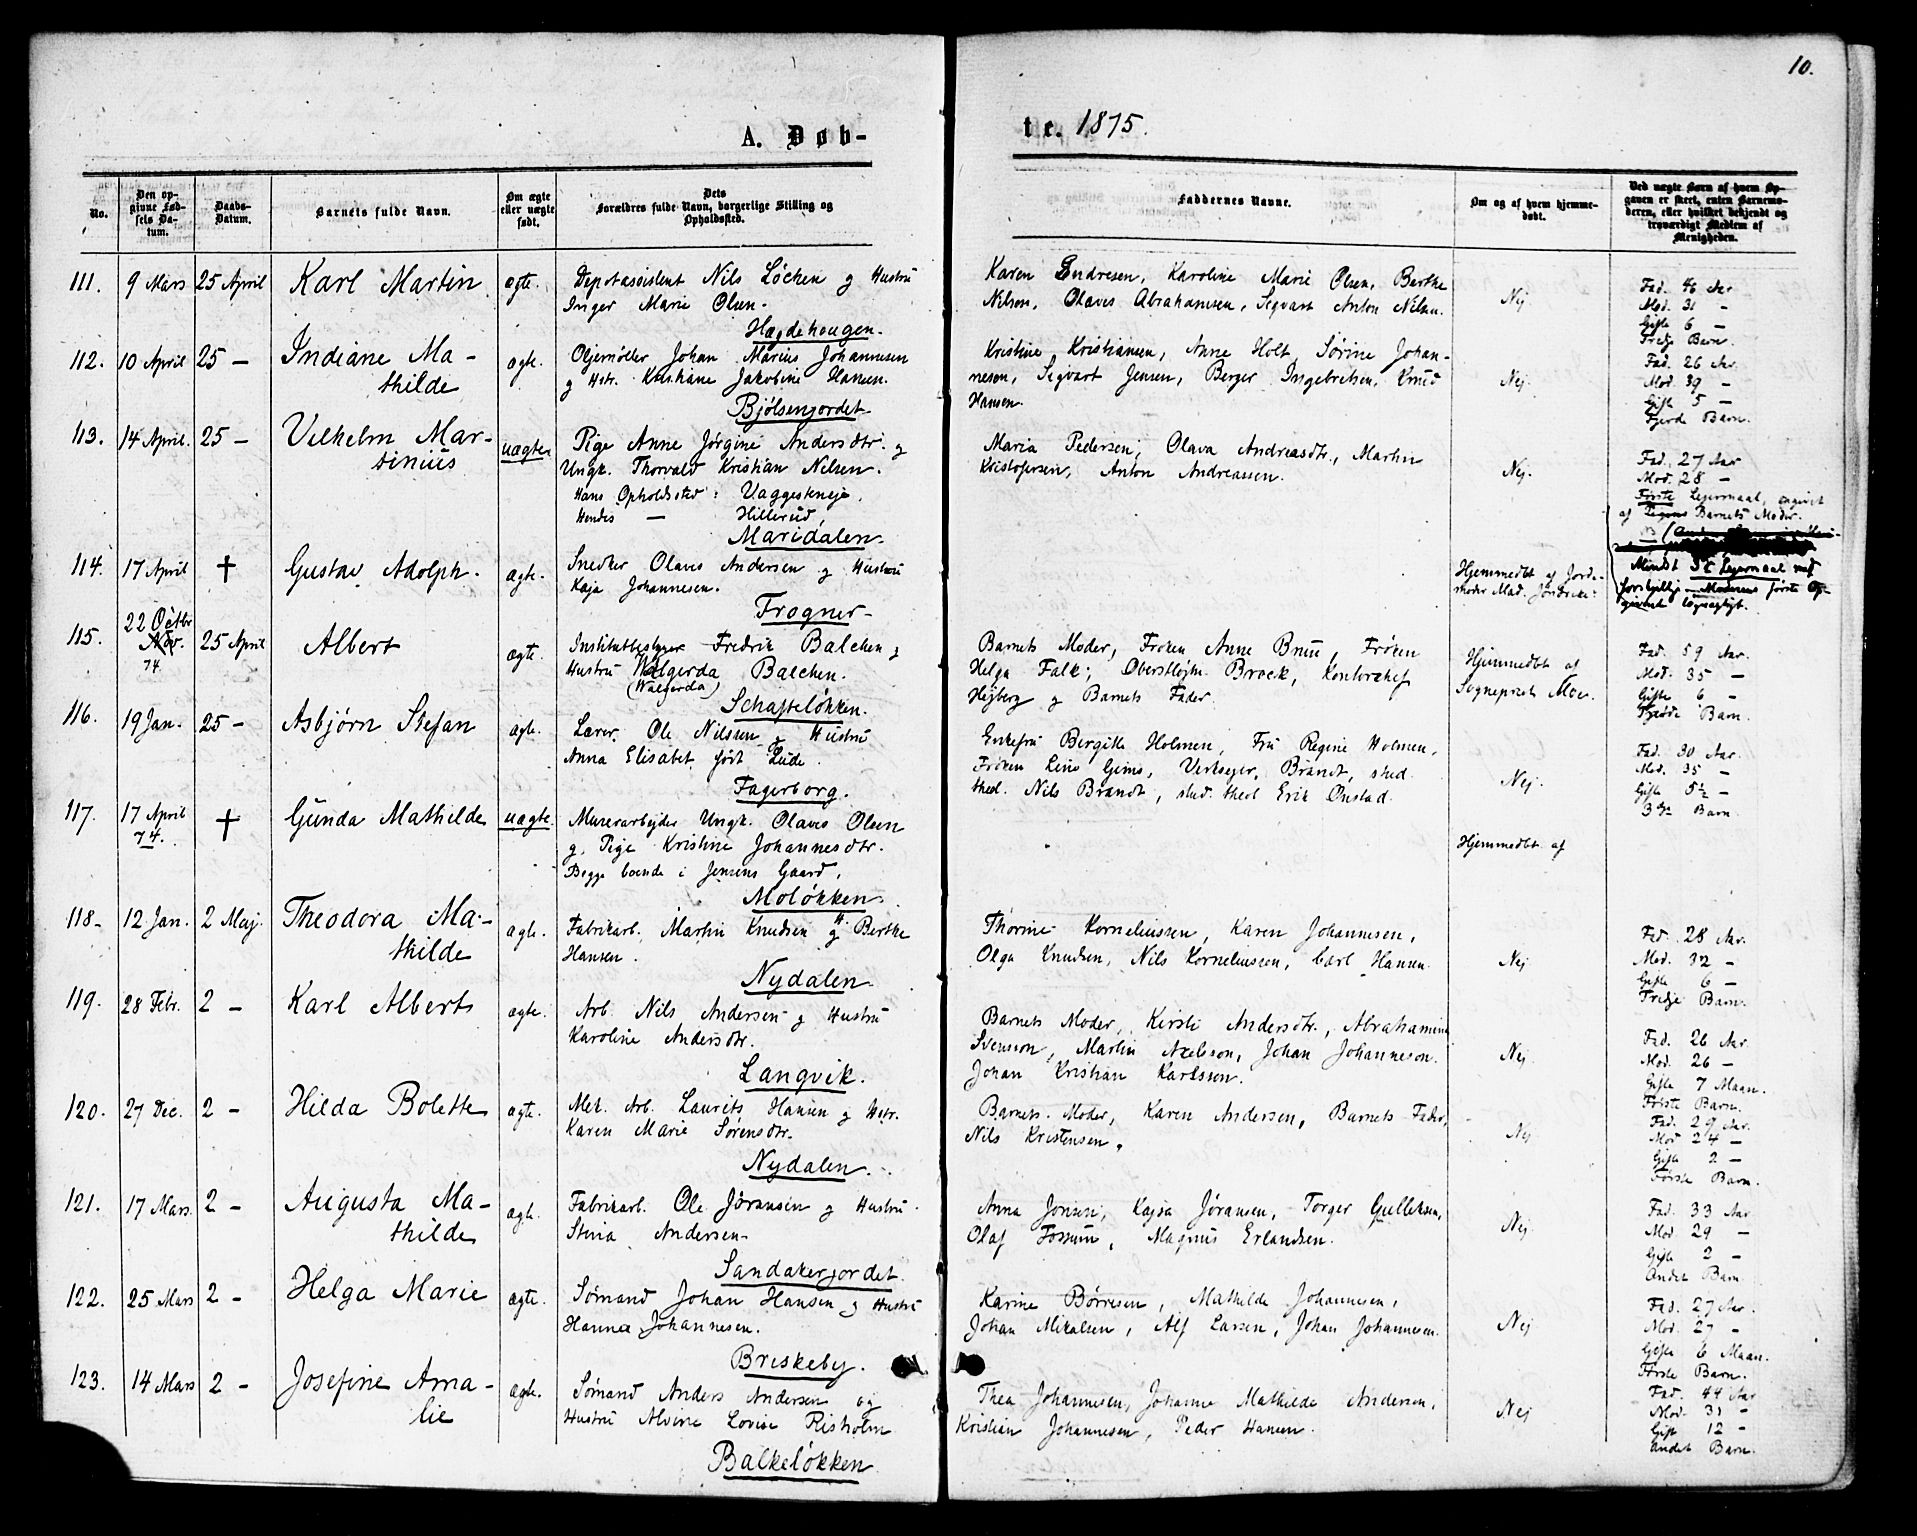 10.
A. Døb-
te. 1875.
No.
Den op-
givne Fød-
sels Da-
tum.
Daabs-
Datum.
Barnets fulde Navn.
Om ægte
eller uægte
født.
Dets
Forældres fulde Navn, borgerlige Stilling og
Opholdssted.
Faddernes Navne.
Om og af hvem hjemme-
døbt.
Ved uægte Børn af hvem Op-
gaven er skeet, enten Barnemo-
deren, eller hvilket bekjendt og
troværdigt Medlem af
Menigheden.
111. 9 Mars 25 April Karl Martin ægte. Depotassistent Nils Löchen g Hustru
Inger Marie Olsen.
Hægdehougen.
Karen Endresen, Karoline Marie Olsen, Berthe
Nilsen, Olaves Abrahamsen, Sigvart Anton Nilsen.
Nej
Fad. 46 Aar
Mod. 31 –
Gifte 6 –
Tredje Barn.
112. 10 April 25 – Indiane Ma-
thilde
ægte. Oljemøller Johan Marius Johannesen
g Hstr. Kristiane Jakobine Hansen.
Bjølsenjordet
Kristine Kristiansen, Anne Holt, Sørine Johan-
nesen, Sigvart Jensen, Berger Ingebretsen, Knud
Hansen.
Nej.
Fad. 26 Aar.
Mod. 39 –
Gifte 5 –
Fjerde Barn.
113. 14 April. 25 – Vilhelm Mar-
tinius
uægte Pige Anne Jørgine Andersdtr. g
Ungk. Thorvald Kristian Nilsen.
Hans Opholdssted: Vaggesteneje.
Hendes — Hillerud,
Maridalen.
Maria Pedersen, Olava Andreasdtr., Martin
Kristofersen, Anton Andreassen.
Nej.
Fad. 27 Aar
Mod. 28 –
Første Lejermaal, opgivet
af Pigens Barnets Moder.
Mindst 3die Lejermaal med
forskjellige – Moderens første Op-
givende løgnagtigt.
114. 17 April † Gustav Adolph. ægte. Snedker Olaves Andersen g Hustru
Kaja Johannesen.
Frogner
Hjemmedbt af Jorde-
moder Mad.
115. 22 Octbr
Nov.
74.
25 April Albert ægte. Institutbestyrer Fredrik Balchen g
Hustru Walgerda Balchen.
(Walgerda)
Schafteløkken.
Barnets Moder, Frøken Anne Bruu, Frøken
Helga Falk; Oberstløjtn. Brock, Kontorchef
Hejberg g Barnets Fader.
Hjemmedbt af
Sogneprest Moe.
Fad. 59 Aar.
Mod. 35 –
Gifte 6 –
Barn.
116. 19 Jan. 25 – Asbjørn Stefan ægte. Lærer Ole Nilssen g Hustru
Anna Elisabet født Lude.
Fagerborg.
Enkefru Bergitte Holmen, Fru Regine Holmen,
Frøken Lina Gims, Verksejer Brandt, stud.
theol. Nils Brandt, stud. theol Erik Onstad.
Nej.
Fad. 30 Aar.
Mod. 35 –
Gifte 5½ –
3die Barn.
117. 17 April
74.
† Gunda Mathilde uægte. Murerarbejder Ungk. Olaves Olsen
g. Pige Kristine Johannesdtr.
Begge boende i Jensens Gaard,
Moløkken
Hjemmedbt af
118- 12 Jan. 2 Maj. Theodora Ma-
thilde
ægte. Fabrikarb. Martin Knudsen g H. Berthe
Hansen.
Nydalen
Thorine Korneliussen, Karen Johannesen,
Olga Knudsen, Nils Korneliussen, Carl Hansen.
Nej
Fad. 28 Aar.
Mod. 32 –
Gifte 6 –
Tredje Barn.
119. 28 Febr. 2 – Karl Albert ægte. Arb. Nils Andersen g Hustru
Karoline Andersdtr.
Langvik.
Barnets Moder, Kirsti Andersdtr., Abrahamine
Svensson, Martin Axelsson, Johan Johanneson.
Johan Kristian Karlsson.
Nej.
Fad. 26 Aar.
Mod. 26 –
Gifte 7 Maan.
Første Barn.
120. 27 Dec. 2 – Hilda Bolette ægte. Mek. Arb. Laurits Hansen g Hstr.
Karen Marie Sørensdtr.
Nydalen.
Barnets Moder, Karen Andersen, Barnets Fader,
Nils Kristensen.
Nej
Fad. 29 Aar.
Mod. 24 –
Gifte 2 –
Første Barn.
121. 17 Mars. 2 – Augusta Ma-
thilde
ægte. Fabrikarb. Ole Jøransen g Hustru
Stina Andersen
Sandakerjordet.
Anna Jonsen, Kajsa Jøransen, Torger Gulliksen,
Olaf Fossum, Magnus Erlandsen.
Nej.
Fad. 33 Aar
Mod. 29 –
Gifte 2 –
Andet Barn
122. 25 Mars 2 – Helga Marie ægte. Sømand Johan Hansen g Hustru
Hanna Johannesen.
Briskeby.
Karine Børresen, Mathilde Johannesen,
Johan Mikalsen, Alf Larsen, Johan Johannesen.
Nej
Fad. 27 Aar.
Mod. 27 –
Gifte 6 Maan.
Første Barn.
123. 14 Mars 2 – Josefine Ama-
lie
ægte. Sømand Anders Andersen og
Hustru Alvine Lovise Risholm
Balkeløkken
Thea Johannesen, Johanne Mathilde Andersen,
Kristian Johannesen, Peder Hansen.
Nej
Fad. 44 Aar
Mod. 31 –
Gift 12 –
Andet Barn.